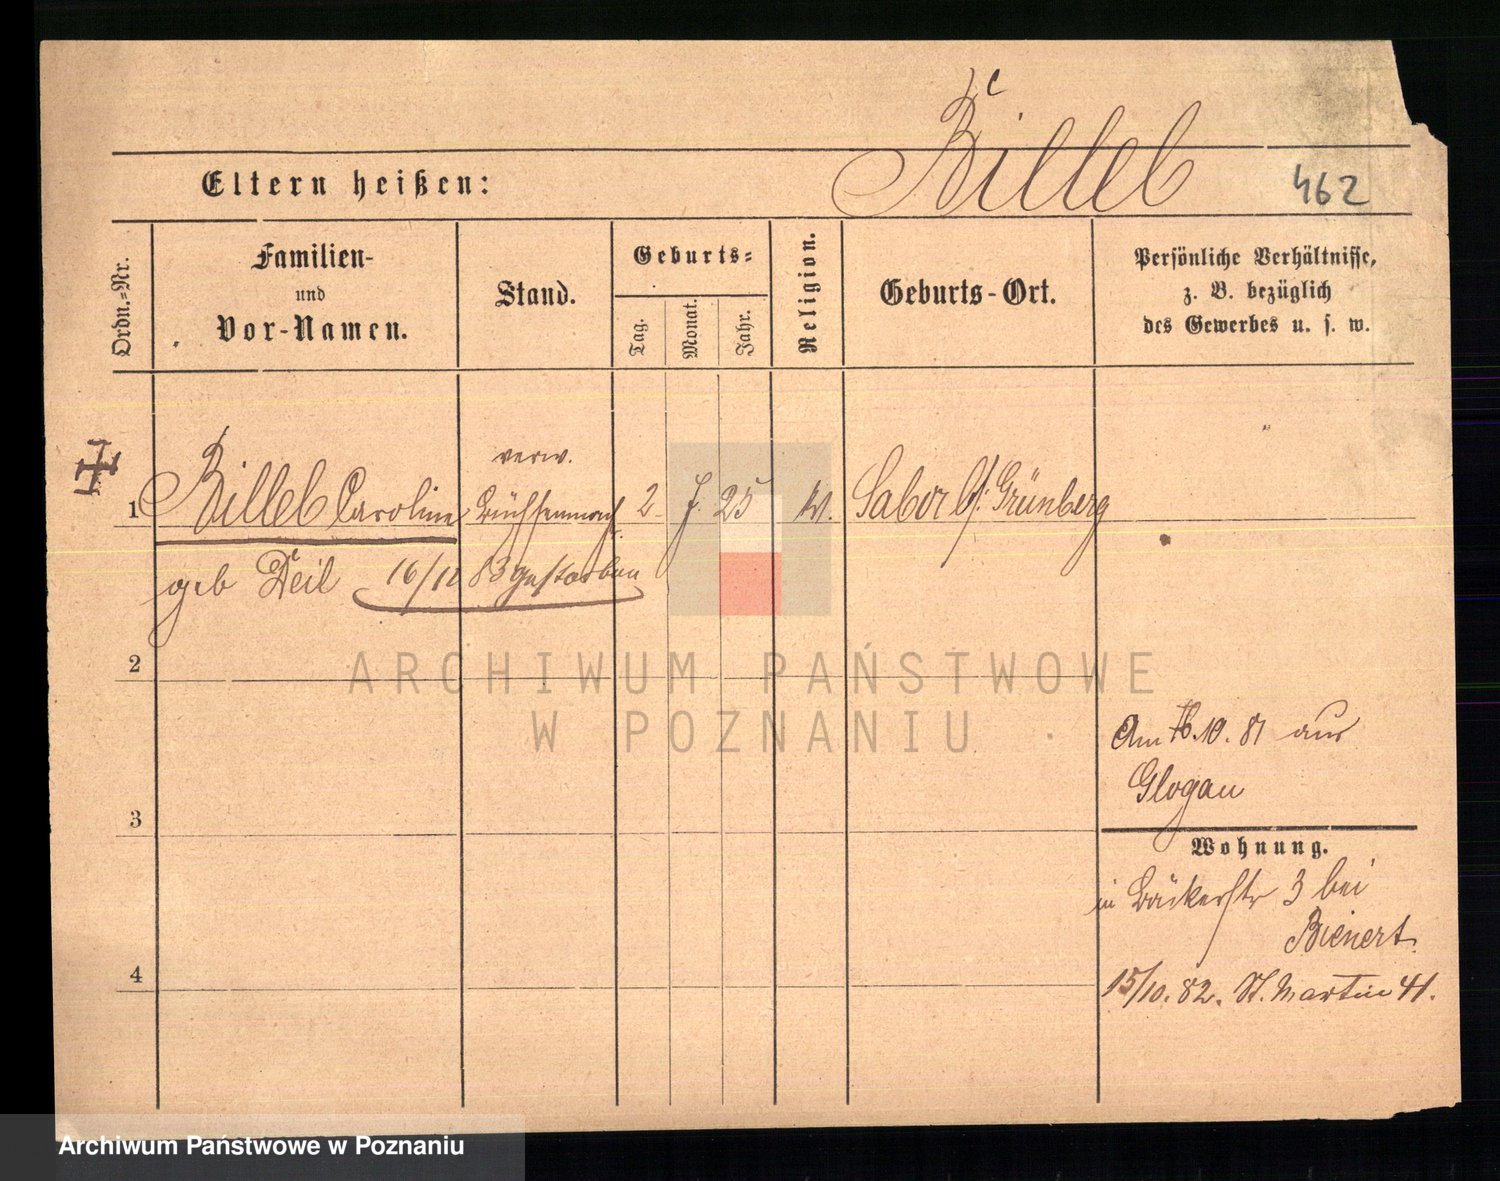 Billeb
462
Eltern heißen:
Ordn.=Nr.
Familien-
und
Vor-Namen.
Stand.
Geburts=
Tag.
Monat.
Jahr.
Religion.
Geburts-Ort.
Persönliche Verhältnisse,
z. B. bezüglich
des Gewerbes u. s. w.
verw.
1 Billeb Caroline Büchsenmach 2 7. 25 Sabor b/ Grünberg
geb Deil 16/11 83 gestorben
2
ARCHIWUM PAŃSTWOWE
W POZNANIU
Am 16.10.81 aus
Glogau
3
Wohnung.
in Bäckerstr 3 bei
Bienert.
4
15/10.82. St. Martin 41.
Archiwum Państwowe w Poznaniu